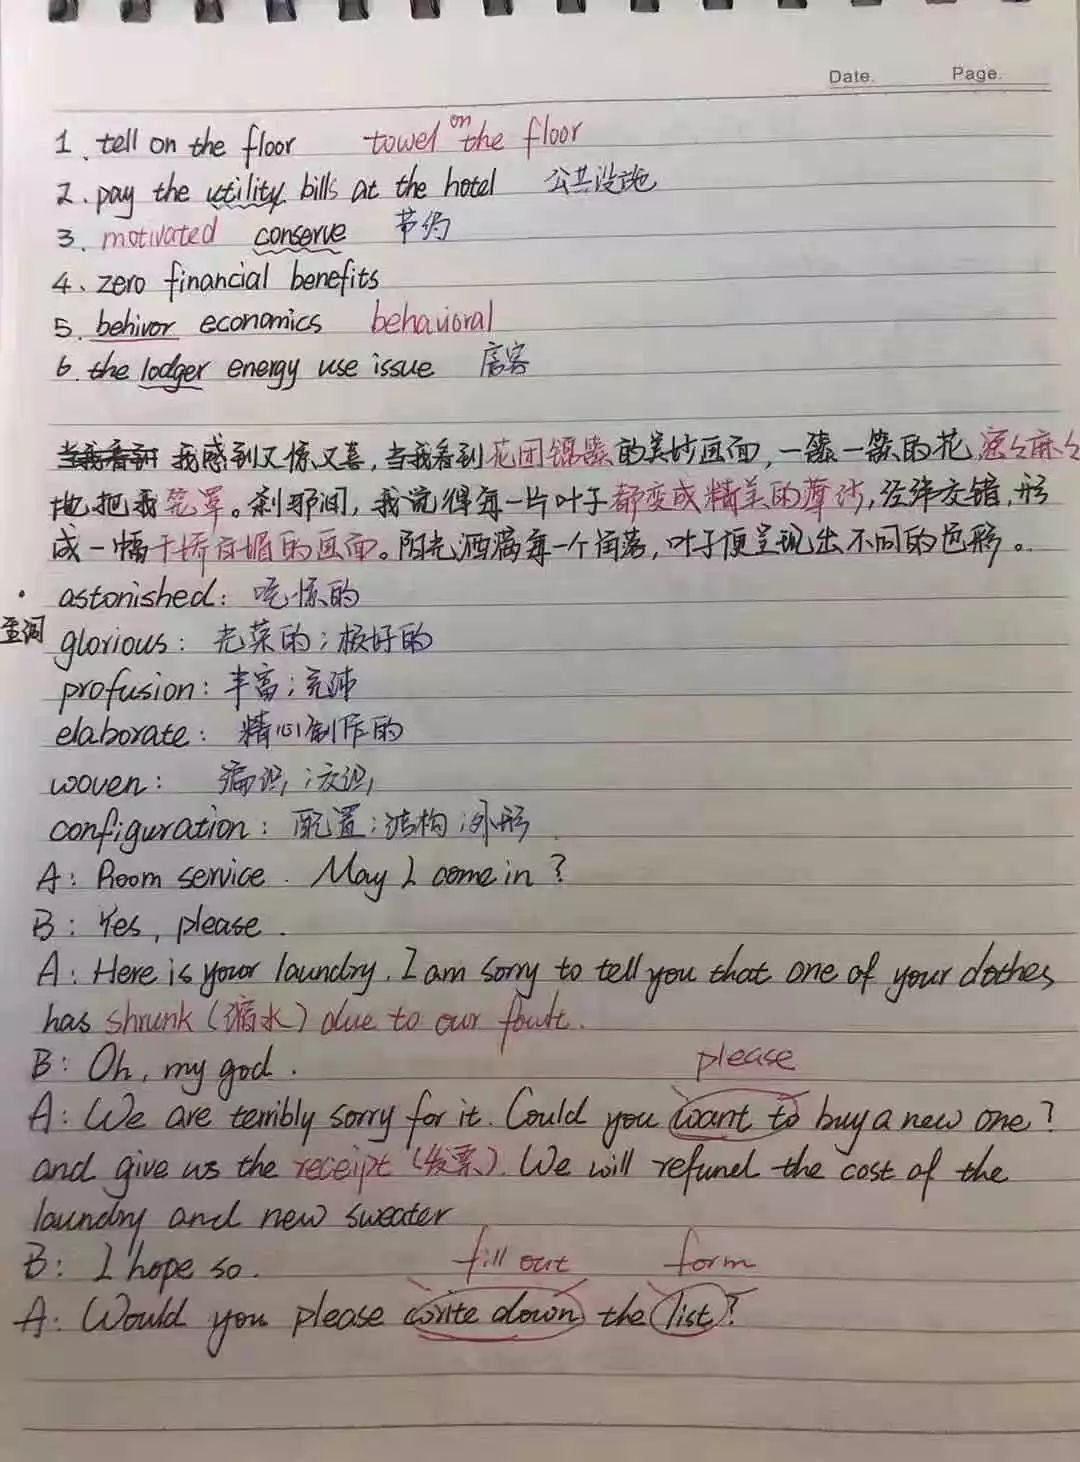 Date. Page.
1. tell on the floor towel on the floor
2. pay the utility bills at the hotel 公共设施
3. motivated conserve 节约
4. zero financial benefits
5. behivor economics behavioral
6. the lodger energy use issue 房客
当我看到 我感到又惊又喜,当我看到花团锦簇的美妙画面,一簇一簇的花,密々麻々
地把我笼罩。刹那间,我觉得每一片叶子都变成精美的薄纱,经纬交错,形
成一幅千娇百媚的画面。阳光洒满每一个角落,叶子便呈现出不同的色彩。
astonished: 吃惊的
glorious: 光荣的;极好的
profusion: 丰富;充沛
elaborate: 精心制作的
woven: 编织;交织
configuration: 配置;结构;外形
A: Room service. May I come in?
B: Yes, please.
A: Here is your laundry. I am sorry to tell you that one of your clothes
has shrunk (缩水) due to our fault.
B: Oh, my god.
please
A: We are terribly sorry for it. Could you want to buy a new one?
and give us the receipt (发票). We will refund the cost of the
laundry and new sweater
B: I hope so.
fill out form
A: Would you please write down the list?